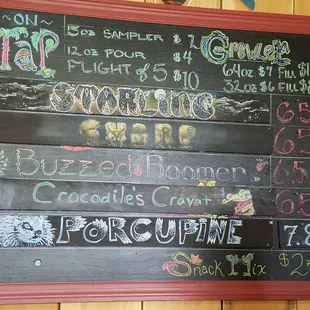 ~ON~
Tap
3oz SAMPLER $2
12oz POUR $4
FLIGHT of 5 $10
Growler
64oz $7 Fill $1
32oz $6 Fill $
STARLING 6.5
6.5
Buzzed Boomer 6.5
Crocodile's Cravat 6.5
PORCUPINE 7.8
Snack Mix $2